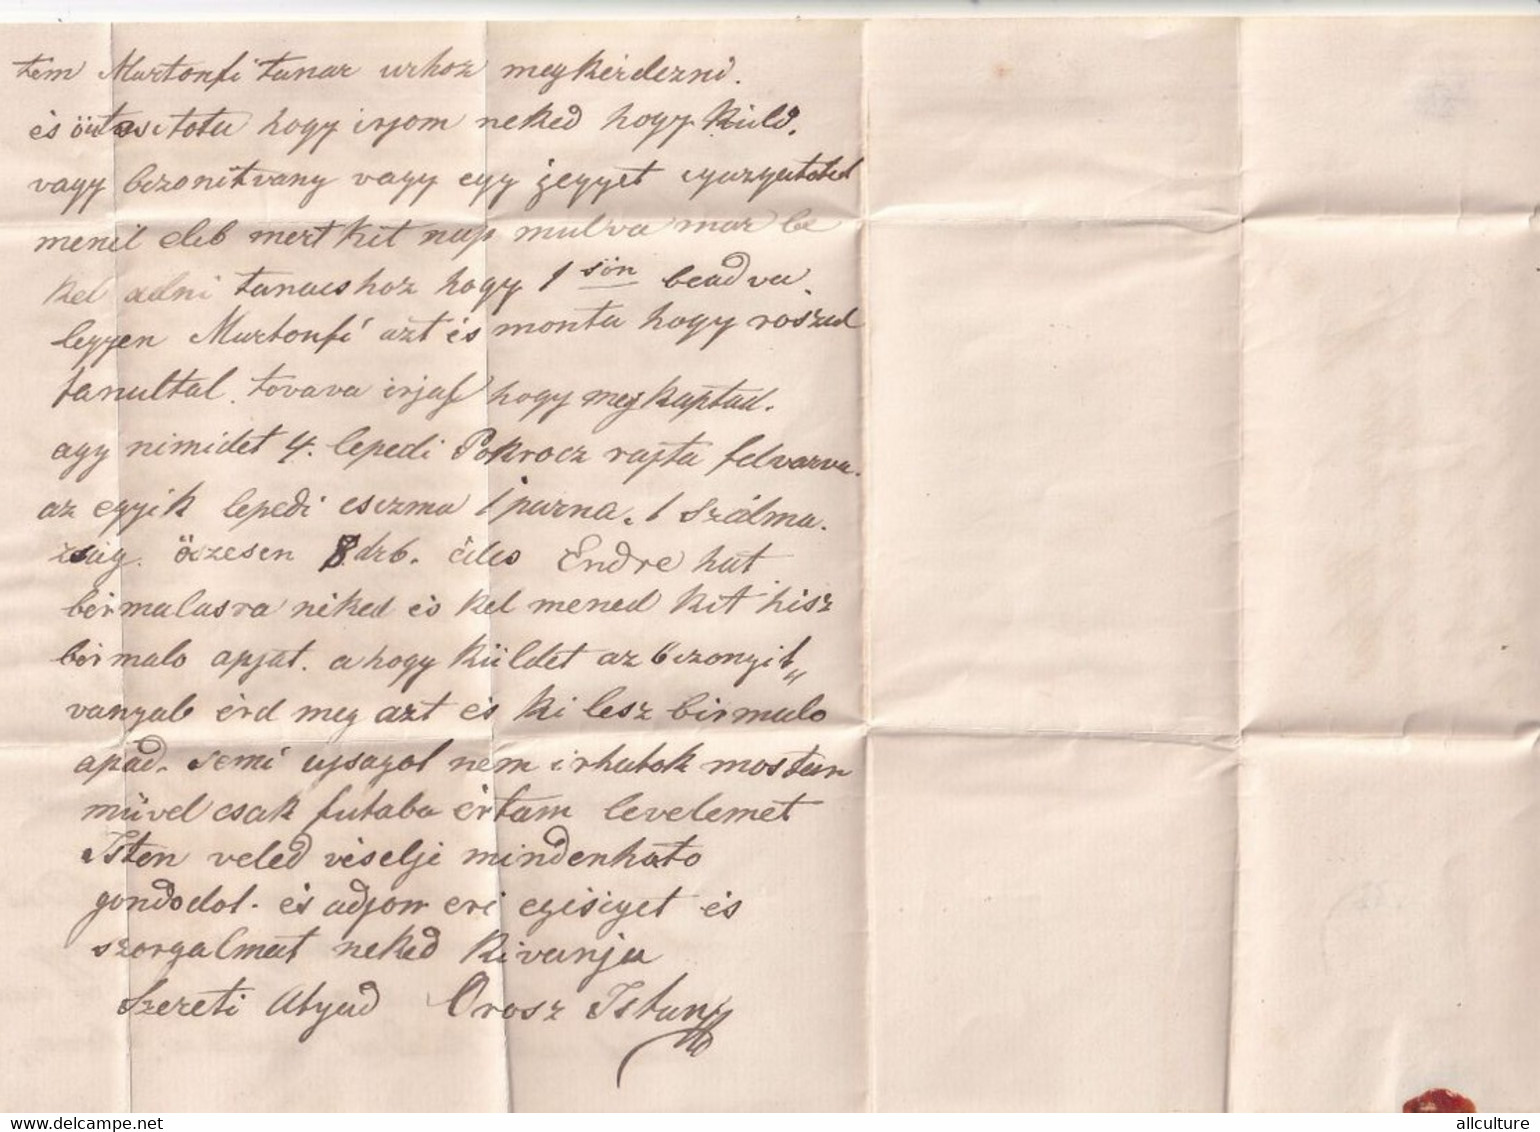 tém Martonfi tanar urhoz megkérdezni.
és öutasitota hogy irjom neked hogy küld.
vagy bizonitvany vagy egy jegyet
menél eleb mert két nap mulva mar be
kel adni tanacshoz hogy 1 sön beadva.
legyen Martonfi azt és monta hogy roszul
tanultal. tovava irjal hogy megkaptad.
agy nimidet 4. lepedi Pokrocz rajta felvarva.
az egyik lepedi csizma 1 parna. 1 szálma.
zság. öszesen 8 drb. édes Endre hat
bérmalasra niked és kel mened kit hisz
bérmalo apját. ahogy küldet az bizonyit„
vanyab érd meg azt és ki lesz birmalo
apád. semi ujsagol nem irhatok mostan
müvel csak futaba értam levelemet
Isten veled viselji mindenhato
gondodol. és adjon eri egisiget és
szorgalmat neked kivanja
Szereti Atyad Orosz Istvan
allculture